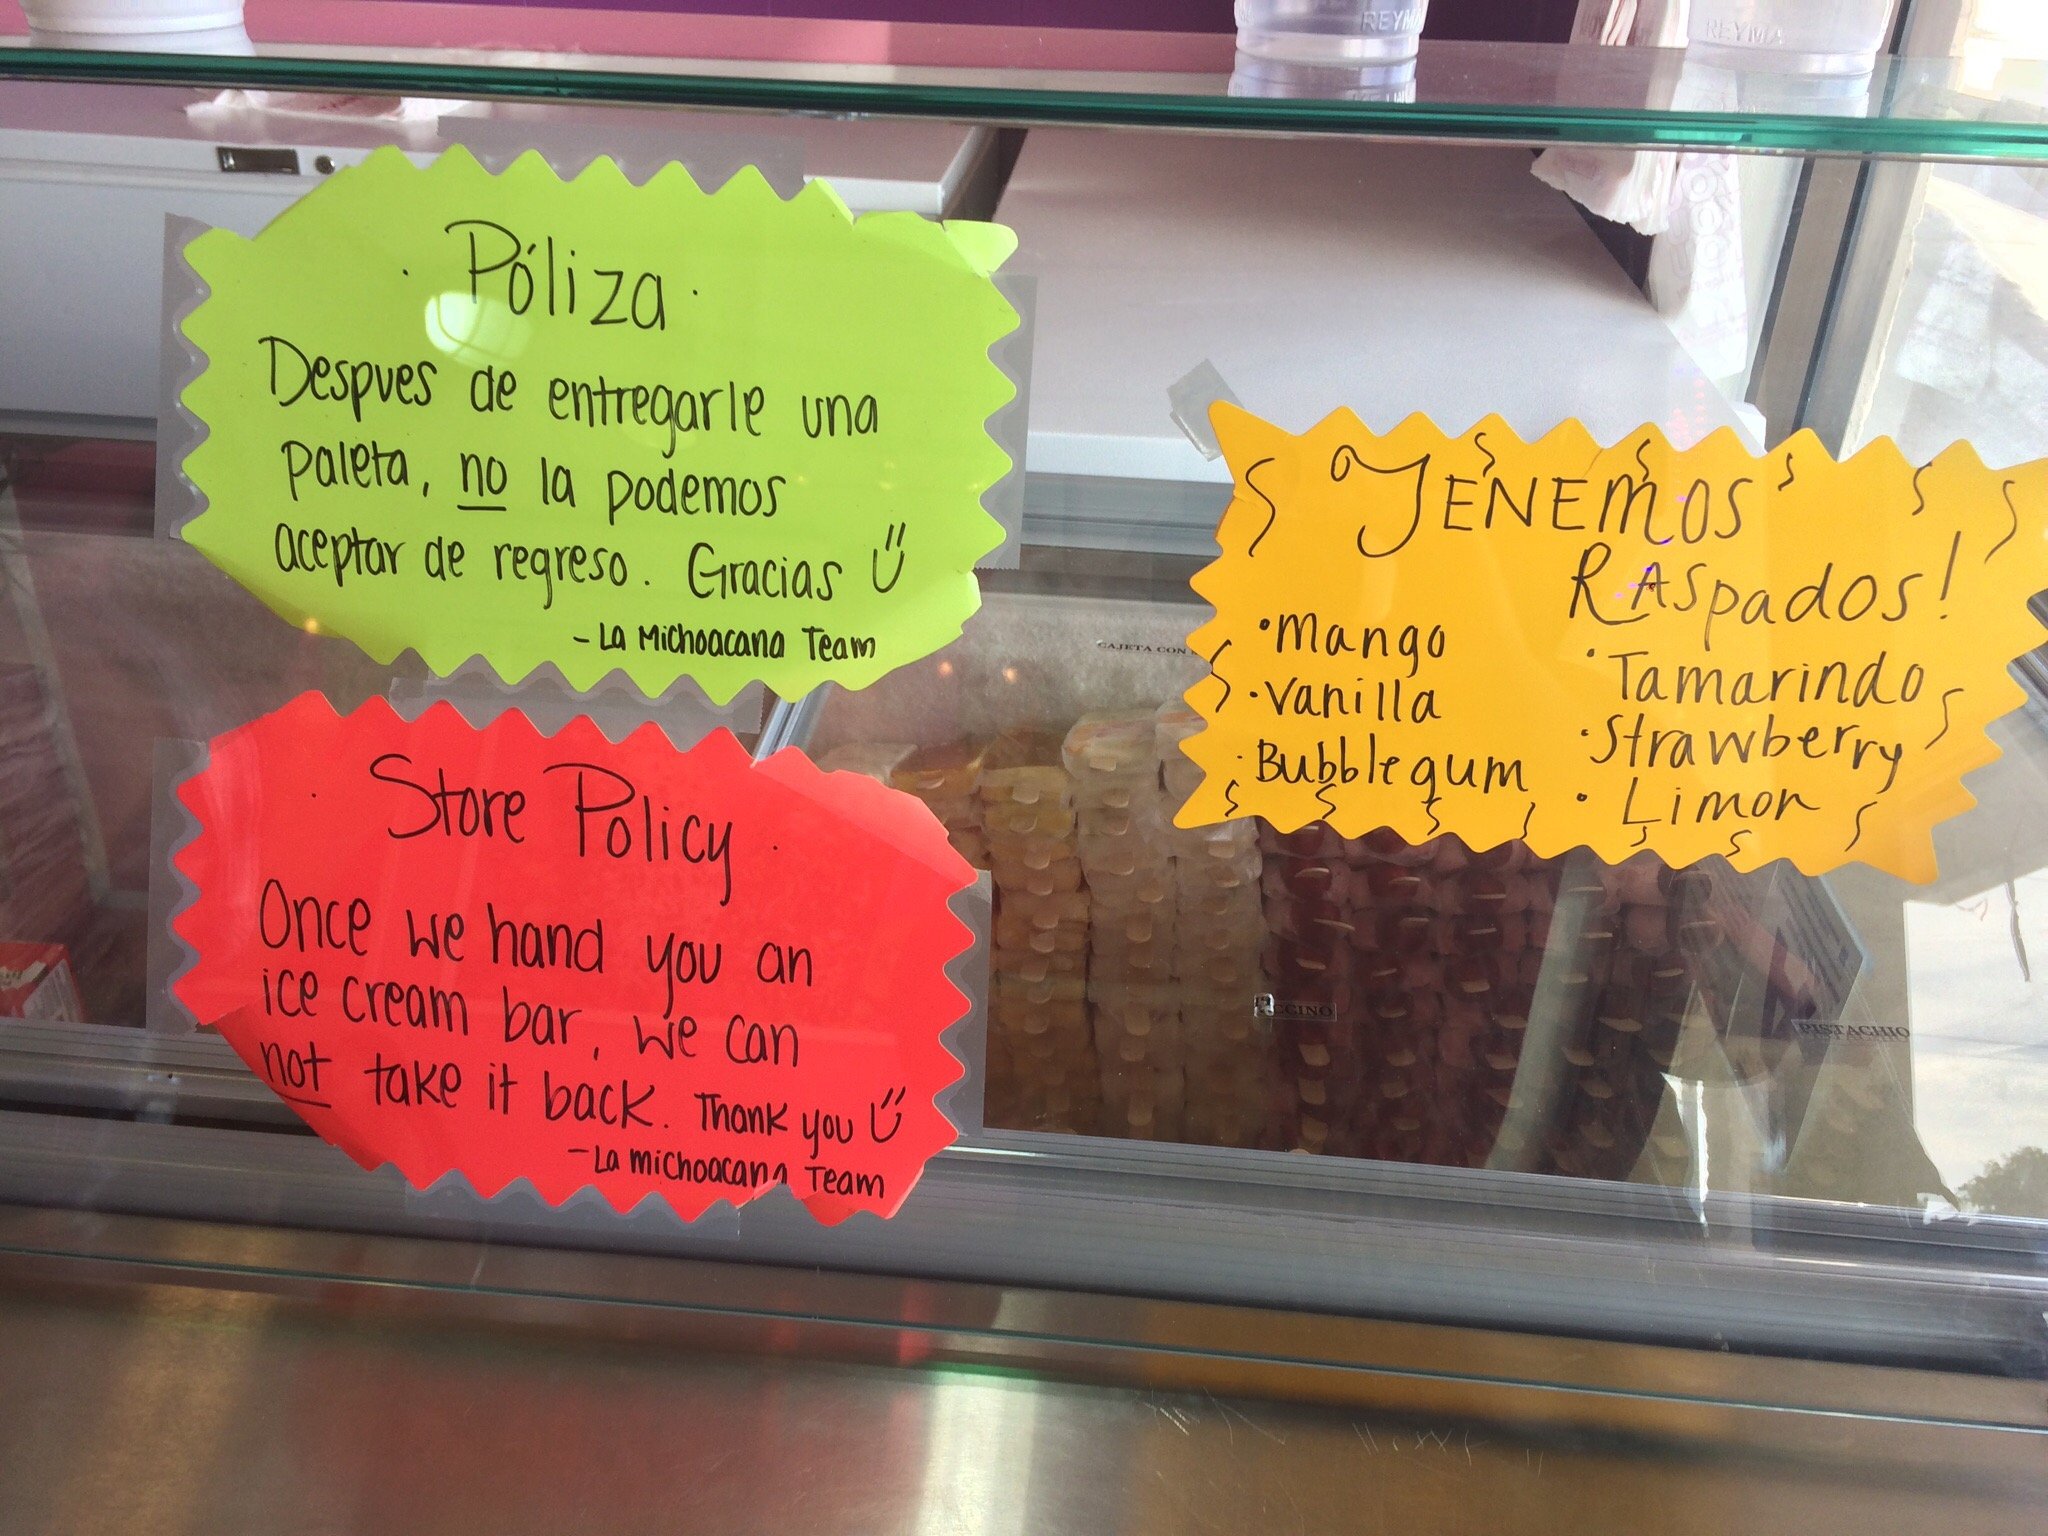 REYMA
REYMA
· Póliza ·
Despues de entregarle una
paleta, no la podemos
aceptar de regreso. Gracias
- La Michoacana Team
· Store Policy ·
Once we hand you an
ice cream bar, we can
not take it back. Thank you
- La michoacana Team
TENEMOS
RASpados!
• Mango
• Vanilla
• Bubblegum
• Tamarindo
• Strawberry
• Limon
CAJETA CON
CCINO
PISTACHIO